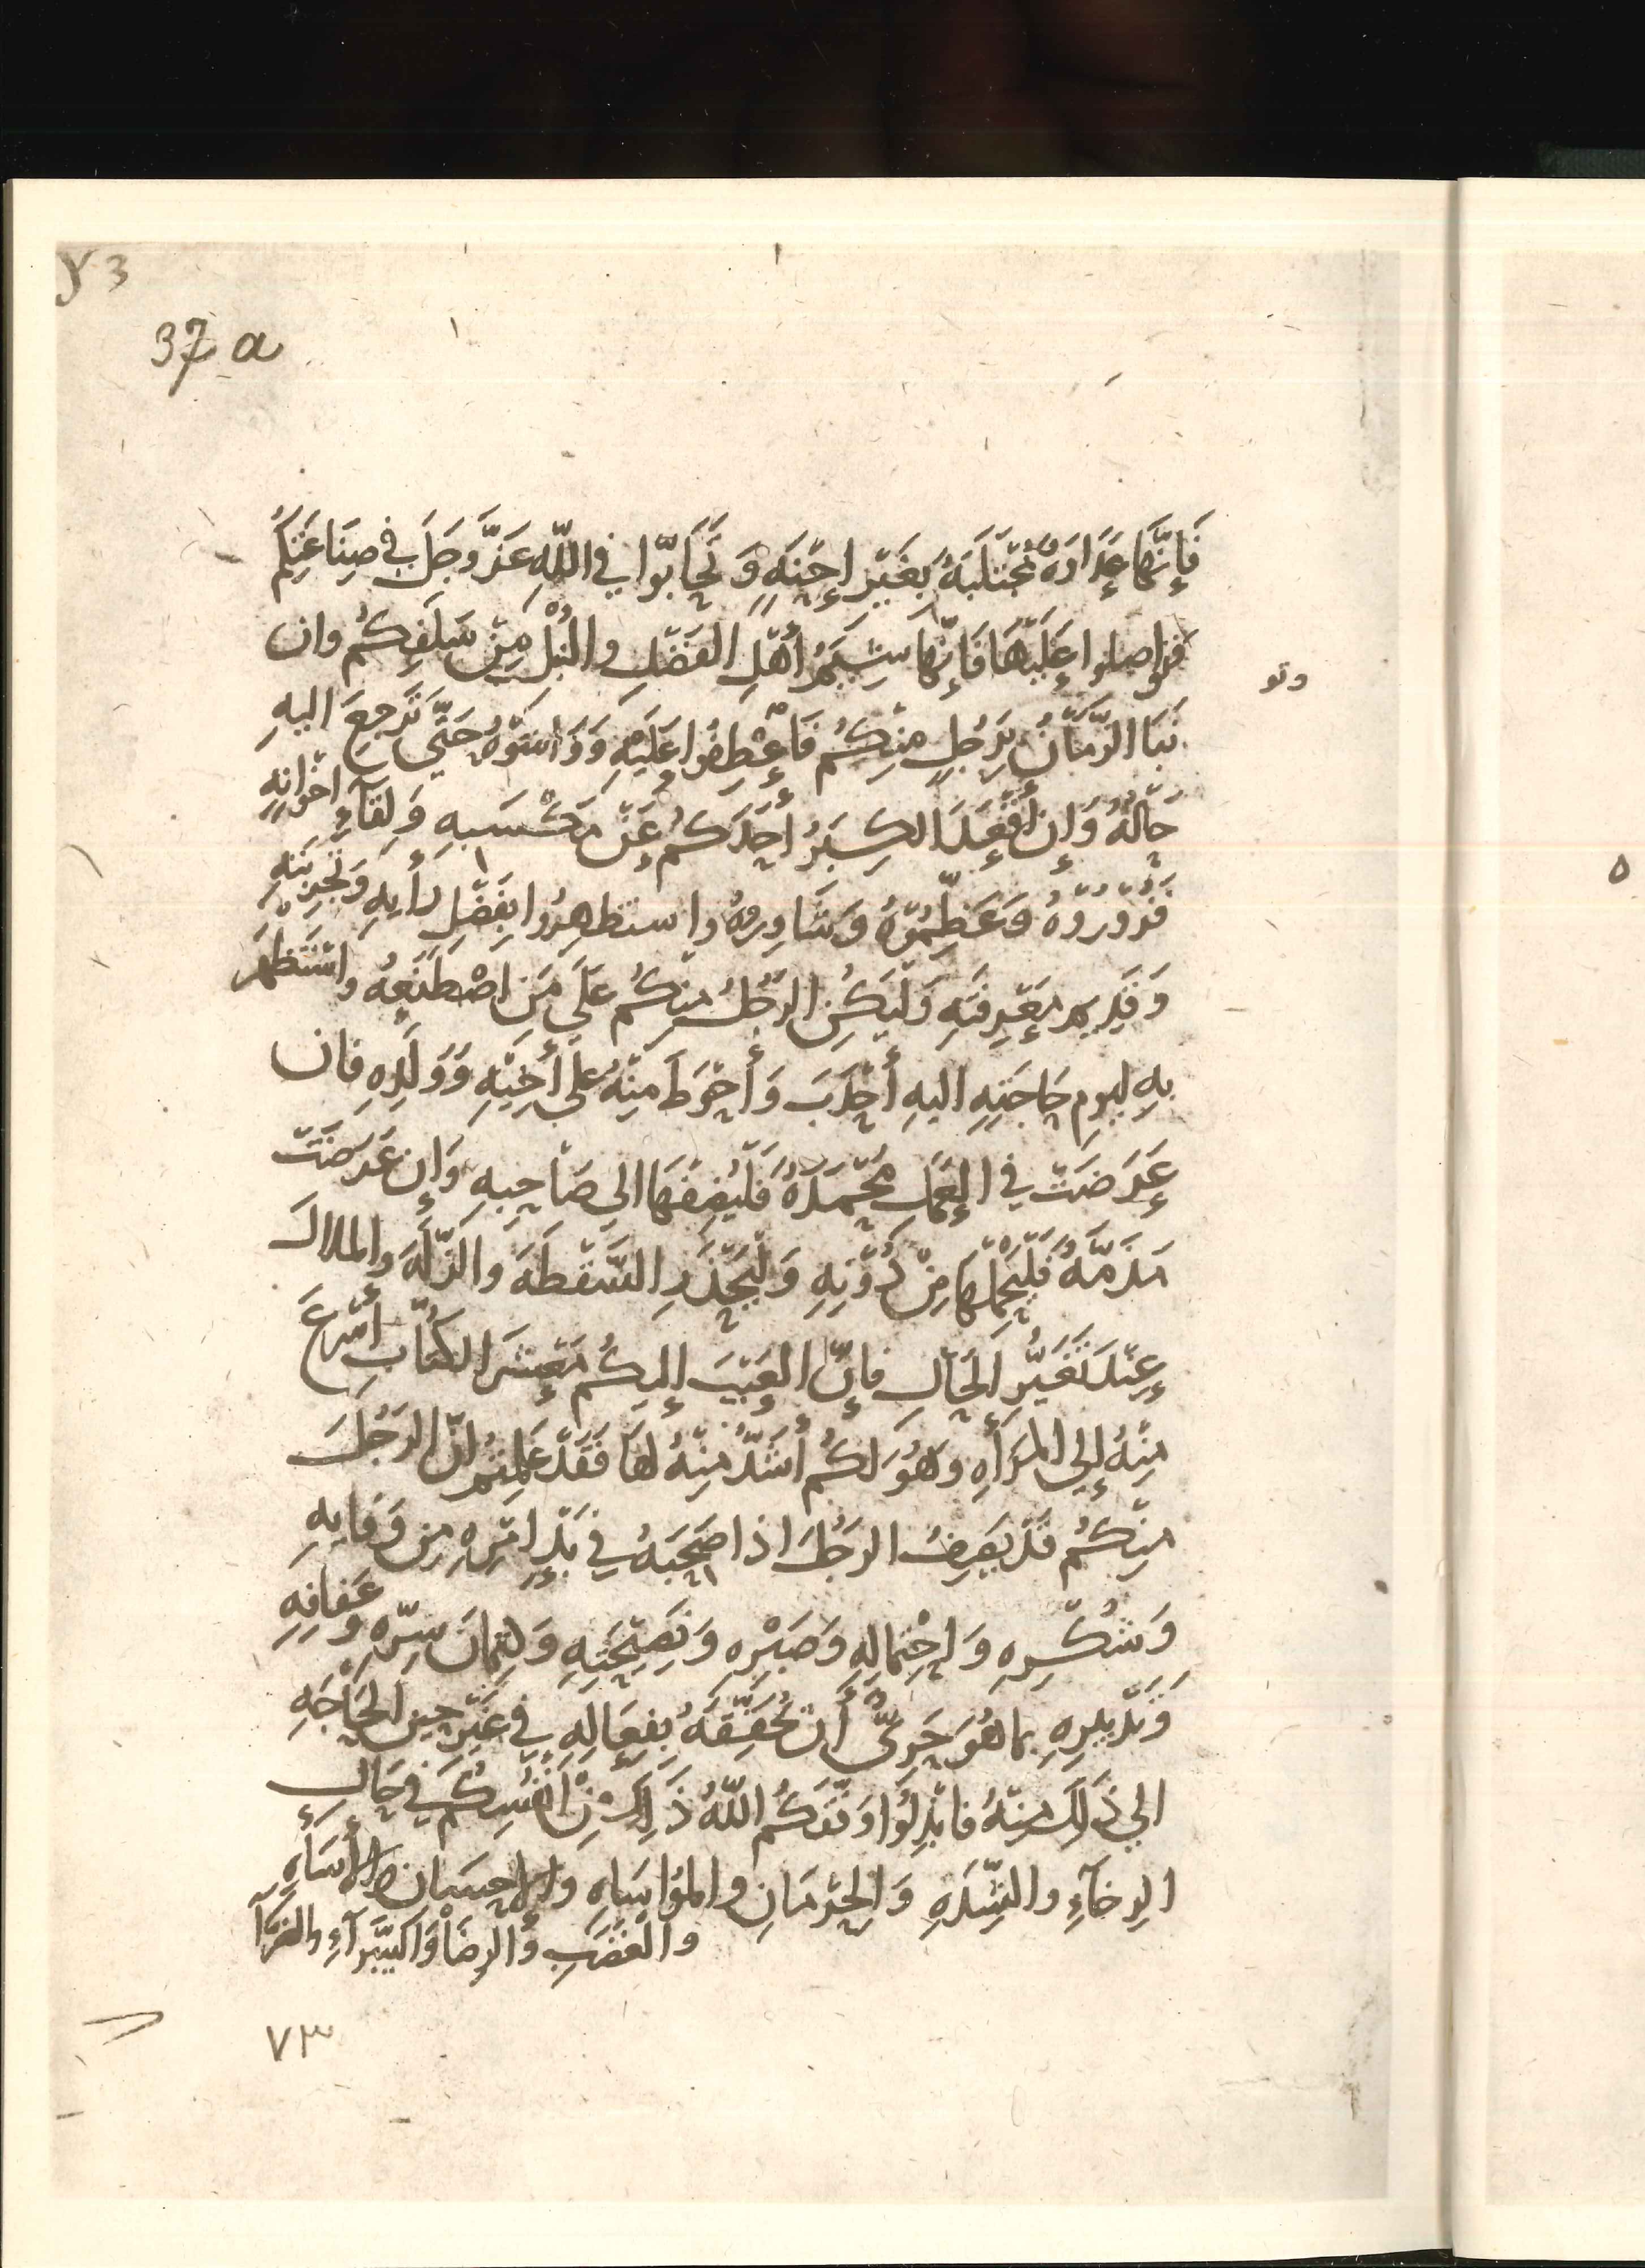 73
37 a
فَإِنَّهَا عَدَاوَةٌ مُجْتَلَبَةٌ بِغَيْرِ إِحْنَةٍ وَتَحَابُّوا فِي اللّٰهِ عَزَّ وَجَلَّ فِي صِنَاعَتِكُمْ
فتواصلوا عَلَيْهَا فَإِنَّهَا شِيَمُ أَهْلِ الفَضْلِ والنُّبْلِ مِنْ سَلَفِكُمْ وان
نَبَا الزَّمَانُ بِرَجُلٍ مِنْكُمْ فَاعْطِفُوا عَلَيْهِ وَوَاسُوْهُ حَتَّى تَرْجِعَ اليهِ
حَالُهُ وَإِن أَقْعَدَ الكِبَرُ أَحَدَكُمْ عَنْ مَكْسَبِهِ وَلِقَآءِ اخْوَانِهِ
فَزُوْرُوْهُ وَعَظِّمُوْهُ وَشَاوِرُوْهُ واستظهِرُوا بِفَضْلِ رَأيِهِ وَتَجْرِبَتِهِ
وَقَدِيمِ مَعْرِفَتِهِ وَلْيَكُنِ الرَّجُلُ مِنكُم عَلَى مَنِ اصْطَنَعَهُ واسْتَظْهَرَ
بِهِ ليومِ حَاجَتِهِ اليهِ أَحْدَبَ وَأَحْوَطَ مِنْهُ عَلى أَخِيْهِ وَوَلَدِهِ فان
عَرَضَتْ فِي العَمَلِ مَحْمَدَةٌ فَلْيُضِفْهَا الى صَاحِبِهِ وَإِن عَرَضَتْ
مَذَمَّةٌ فَلْيَحْمِلْهَا مِنْ دُوْنِهِ وَلْيَحْذَرِ السَّقْطَةَ والزَّلَّةَ والملالَ
عِنْدَ تَغَيُّرِ الحَالِ فَإِنَّ العَيْبَ إليكُمْ مَعْشَرَ الكُتَّابِ أَسْرَعَ
مِنْهُ إِلى المَرأَةِ وَهُوَ لَكُمْ أَشَدُّ مِنْهُ لَهَا فَقَدْ عَلِمْتُمْ انَّ الرَجُلَ
مِنْكُمْ قَدْ يَصِفُ الرَجُلَ اذا صَحِبَهُ فِي بَدْءِ امْرِهِ مِن وَفَايِهِ
وَشُكْرِهِ وَاحْتِمالِهِ وَصَبْرِهِ وَنَصِيْحَتِهِ وَكِتْمَانِ سِرِّهِ وعَفَافِهِ
وَتَدْبِيرِهِ بما هُوَ حَرِىٌّ أَن تُحَقِّقَهُ بِفِعَالِهِ فِي غَيْرِ حِينِ الحَاجَةِ
الي ذَلِكَ مِنْهُ فابْذِلُوا وَفَّقَكُمُ اللّٰهُ ذَلِكَ مِنْ أَنْفُسِكُمْ فِي حَالِ
الرخَآءِ والشِّدَةِ وَالحِرْمَانِ والمؤاسَاةِ والاحسَانِ والأسَاءَةِ
والغَضَبِ والرِضَا وَالسَّرآءِ والضرَّآ
وتو
٧٣